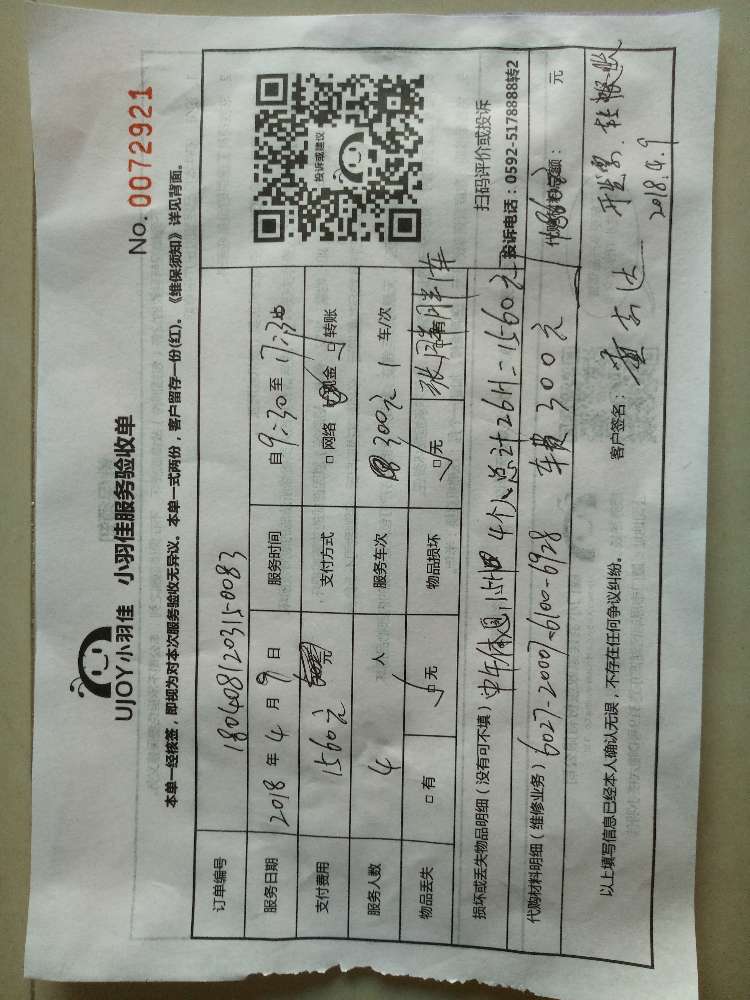 UJOY小羽佳 小羽佳服务验收单
No. 0072921
本单一经核签，即视为对本次服务验收无异议。本单一式两份，客户留存一份(红)。《维保须知》详见背面。
订单编号 180408120315-0083
服务日期 2018 年 4 月 9 日 服务时间 自 9:30 至 17:30
支付费用 1560元 元 支付方式 □ 网络 □ 现金 □ 转账
服务人数 4 人 服务车次 300元 1 车/次
物品丢失 □ 有 □ 无 物品损坏 □ 无
投诉或建议
扫码评价或投诉
投诉电话：0592-5178888转2
损坏或丢失物品明细（没有可不填）中午休息1小时 4个人总计26H=1560元
代购材料明细（维修业务）6027-20007-6100-6928 车费300元
元
以上填写信息已经本人确认无误，不存在任何争议纠纷。 客户签名：
开发票.转账
2018.4.9